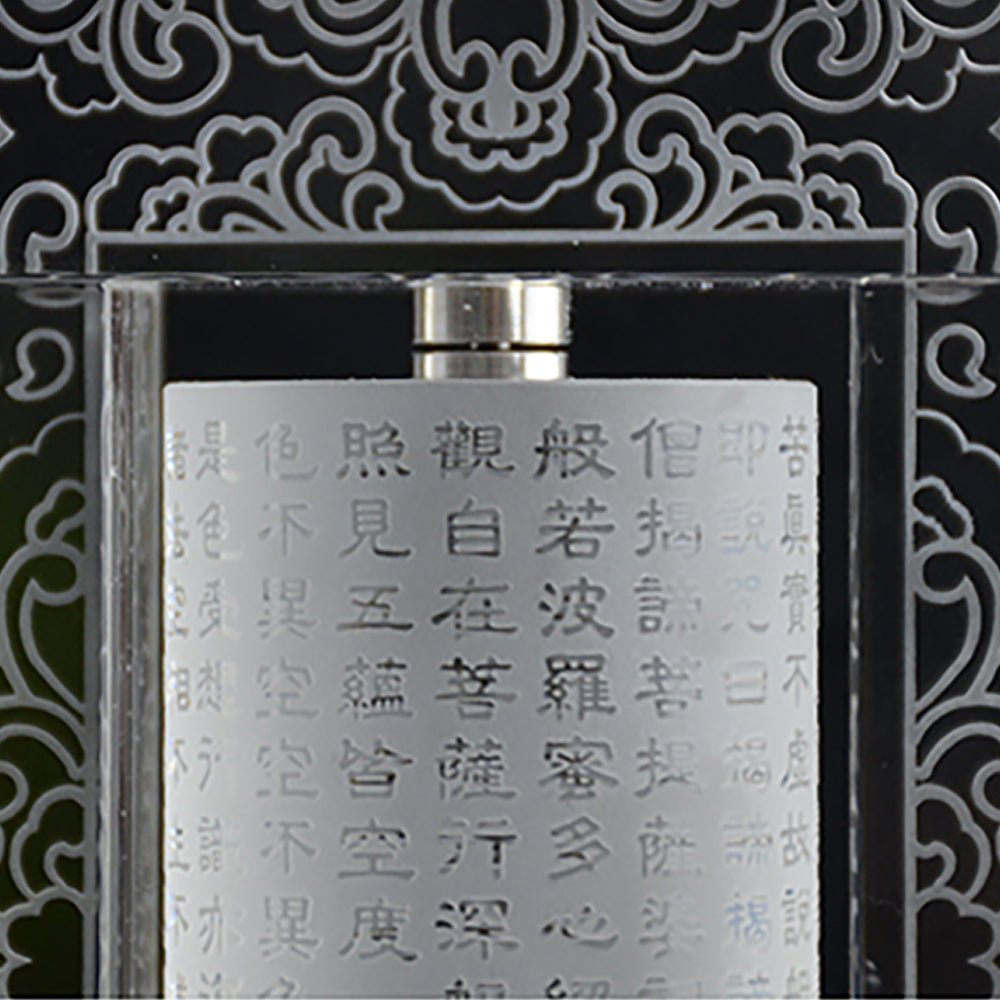 苦眞實不虛故說般
即說咒曰揭諦揭諦
僧揭諦菩提薩婆訶
般若波羅蜜多心經
觀自在菩薩行深般
照見五蘊皆空度
色不異空空不異色
是色受想行識亦
空相不生不